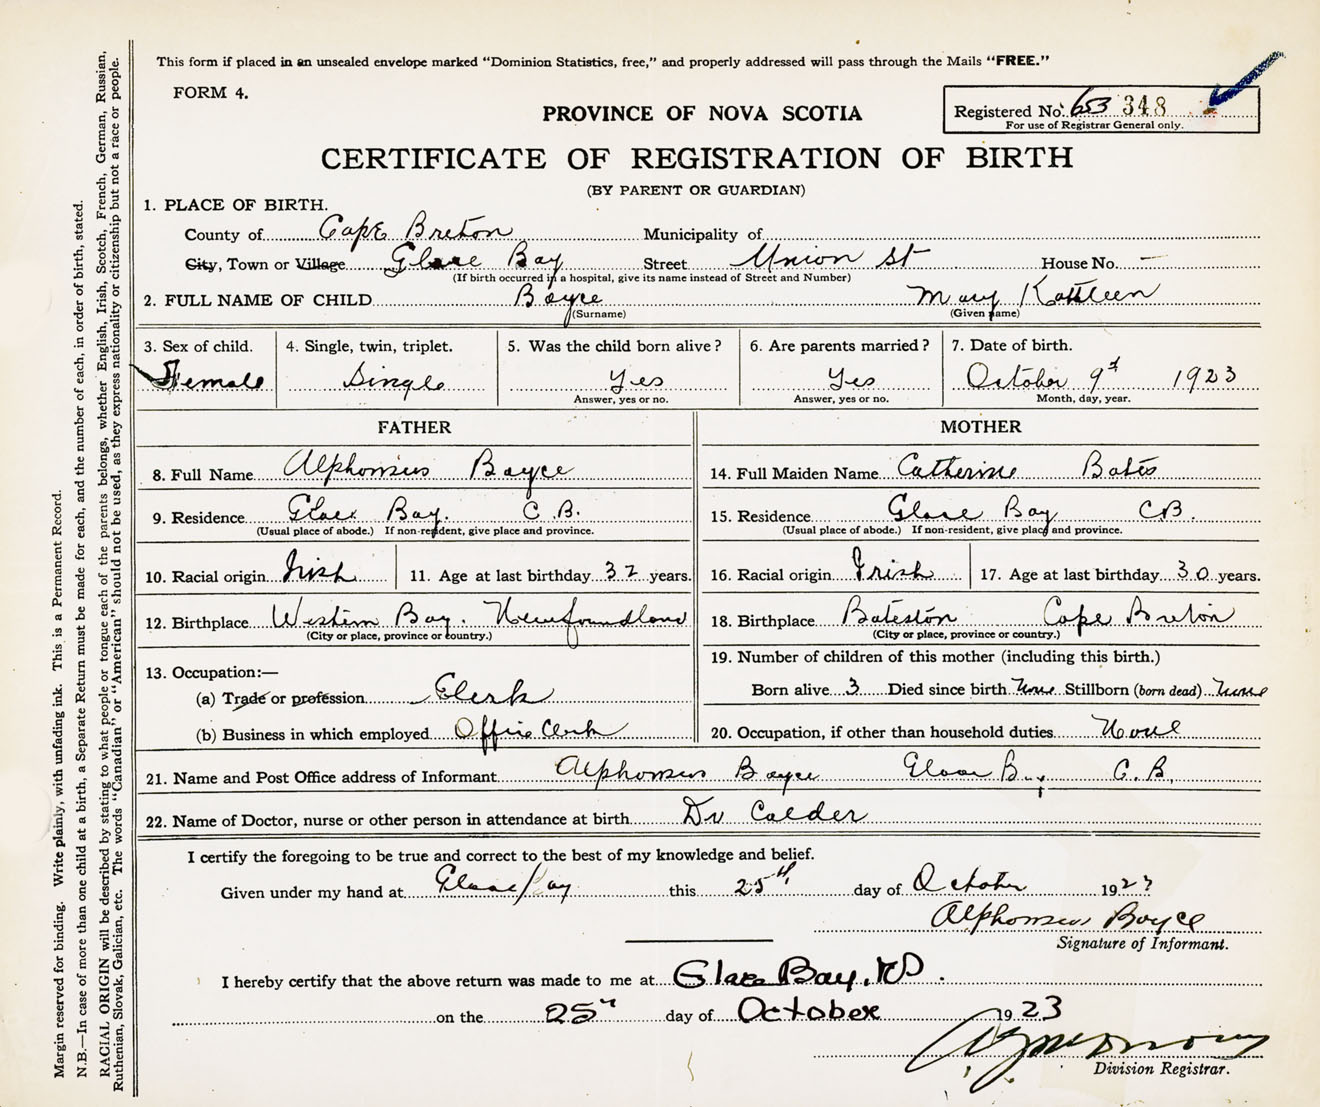 This form if placed in an unsealed envelope marked "Dominion Statistics, free," and properly addressed will pass through the Mails "FREE."
FORM 4.
PROVINCE OF NOVA SCOTIA
Registered No. 653 348
For use of Registrar General only.
CERTIFICATE OF REGISTRATION OF BIRTH
(BY PARENT OR GUARDIAN)
1. PLACE OF BIRTH.
County of Cape Breton Municipality of
City, Town or Village Glace Bay Street Union St House No. —
(If birth occurred in a hospital, give its name instead of Street and Number)
2. FULL NAME OF CHILD Boyce Mary Kathleen
(Surname) (Given name)
3. Sex of child. 4. Single, twin, triplet. 5. Was the child born alive? 6. Are parents married? 7. Date of birth.
Female Single Yes Yes October 9th 1923
Answer, yes or no. Answer, yes or no. Month, day, year.
FATHER MOTHER
8. Full Name Alphonsus Boyce 14. Full Maiden Name Catherine Bates
9. Residence Glace Bay. C.B. 15. Residence Glace Bay C.B.
(Usual place of abode.) If non-resident, give place and province. (Usual place of abode.) If non-resident, give place and province.
10. Racial origin Irish 11. Age at last birthday 32 years. 16. Racial origin Irish 17. Age at last birthday 30 years.
12. Birthplace Western Bay. Newfoundland 18. Birthplace Bateston Cape Breton
(City or place, province or country.) (City or place, province or country.)
13. Occupation:— 19. Number of children of this mother (including this birth.)
(a) Trade or profession Clerk Born alive 3 Died since birth None Stillborn (born dead) None
(b) Business in which employed Office Clerk 20. Occupation, if other than household duties None
21. Name and Post Office address of Informant Alphonsus Boyce Glace Bay C.B.
22. Name of Doctor, nurse or other person in attendance at birth Dr Calder
I certify the foregoing to be true and correct to the best of my knowledge and belief.
Given under my hand at Glace Bay this 25th day of October 1923
Alphonsus Boyce
Signature of Informant.
I hereby certify that the above return was made to me at Glace Bay, NS.
on the 25th day of October 1923
Division Registrar.
Margin reserved for binding. Write plainly, with unfading ink. This is a Permanent Record.
N.B.—In case of more than one child at a birth, a Separate Return must be made for each, and the number of each, in order of birth, stated.
RACIAL ORIGIN will be described by stating to what people or tongue each of the parents belongs, whether English, Irish, Scotch, French, German, Russian,
Ruthenian, Slovak, Galician, etc. The words "Canadian" or "American" should not be used, as they express nationality or citizenship but not a race or people.